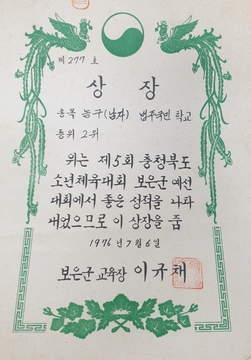 제 277 호
상장
종목 농구(남자) 법주국민 학교
등위 2위
위는 제5회 충청북도
소년체육대회 보은군 예선
대회에서 좋은 성적을 나타
내었으므로 이 상장을 줌
1976년 7월 6일
보은군 교육장 이규재